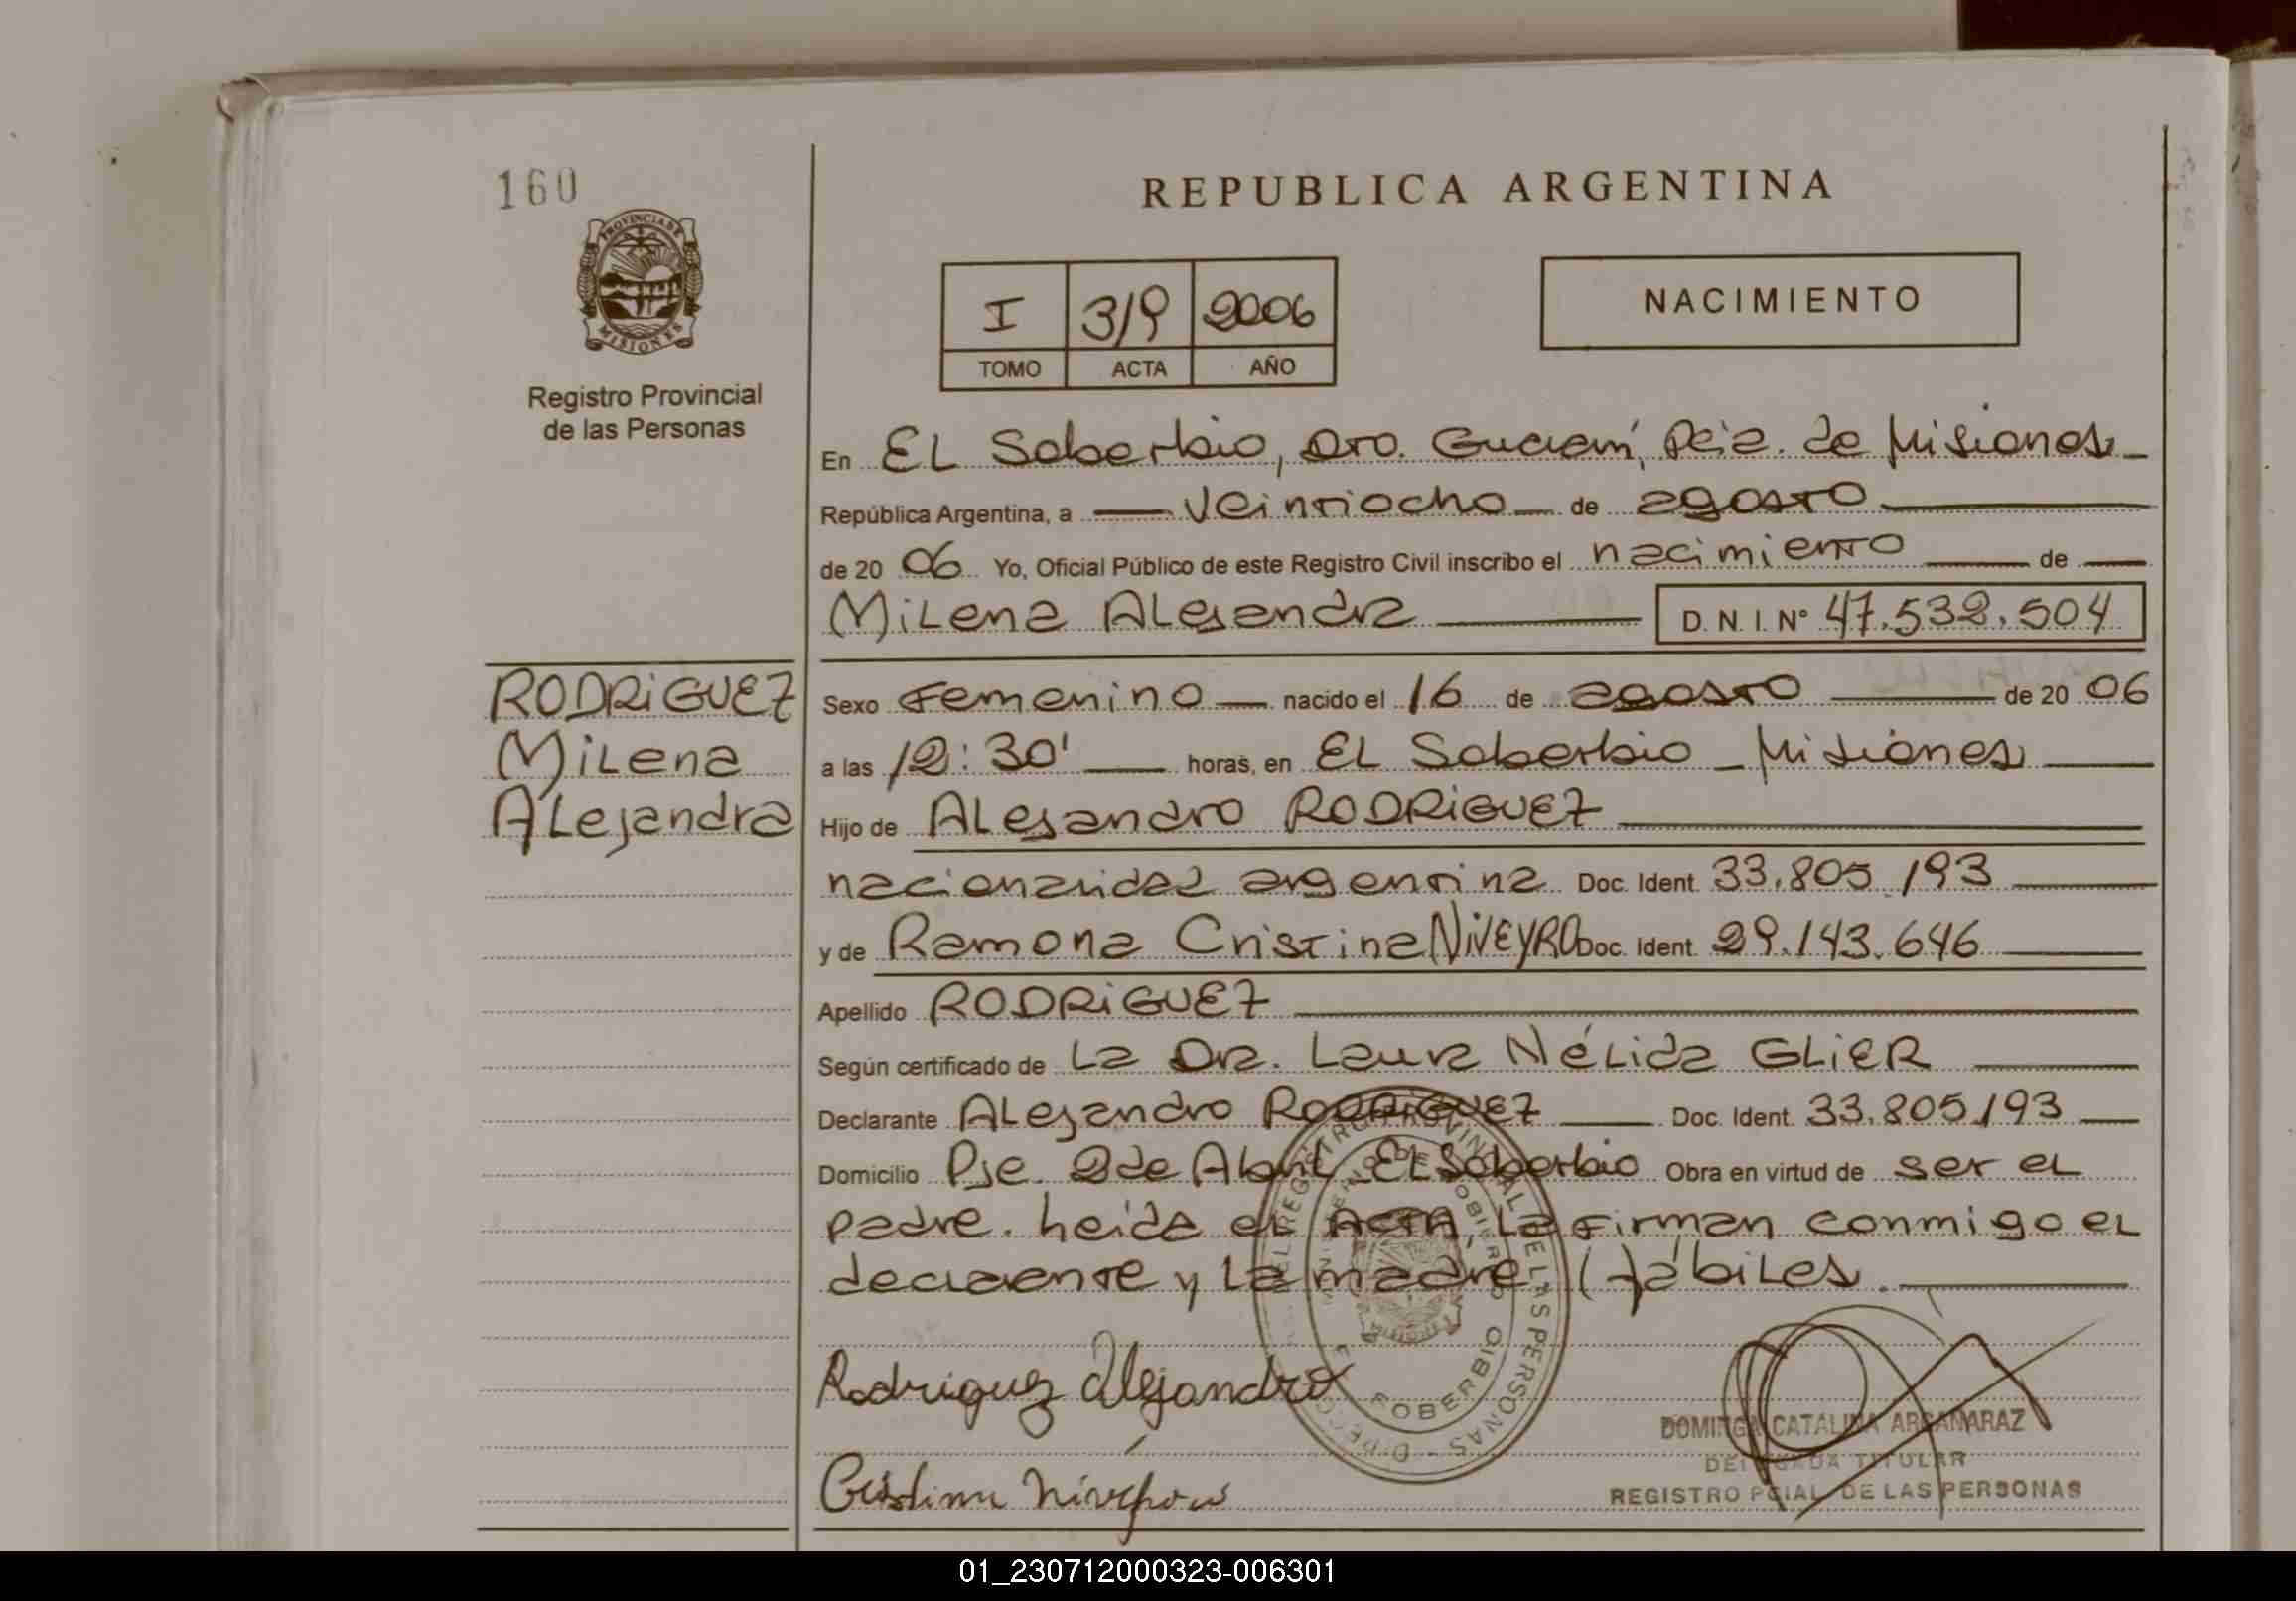 160
PROVINCIA DE
MISIONES
Registro Provincial
de las Personas
REPUBLICA ARGENTINA
I 319 2006
TOMO ACTA AÑO
NACIMIENTO
En EL Soberbio, Dto. Guaraní, Pcia. de Misiones
República Argentina, a — Veintiocho — de agosto —
de 20 06 Yo, Oficial Público de este Registro Civil inscribo el nacimiento — de —
Milena Alejandra — D. N. I. Nº 47.532.504
RODRIGUEZ
Milena
Alejandra
Sexo Femenino — nacido el 16 de agosto — de 20 06
a las 12:30' — horas, en EL Soberbio _ Misiones —
Hijo de Alejandro RODRIGUEZ —
nacionalidad argentina Doc. Ident. 33.805.193 —
y de Ramona Cristina NIVEYRO Doc. Ident. 29.143.646 —
Apellido RODRIGUEZ —
Según certificado de La Dra. Laura Nélida GLIER —
Declarante Alejandro RODRIGUEZ — Doc. Ident. 33.805.193 —
Domicilio Pje. 2 de Abril _ EL Soberbio Obra en virtud de ser el
padre. Leída el ACTA, La firman conmigo el
declarante y La madre Hábiles. —
Rodriguez Alejandro
Cristina
DOMINGA CATALINA ARGAÑARAZ
DELEGADA TITULAR
REGISTRO PCIAL. DE LAS PERSONAS
REGISTRO PROVINCIAL DE LAS PERSONAS
SOBERBIO
01_230712000323-006301